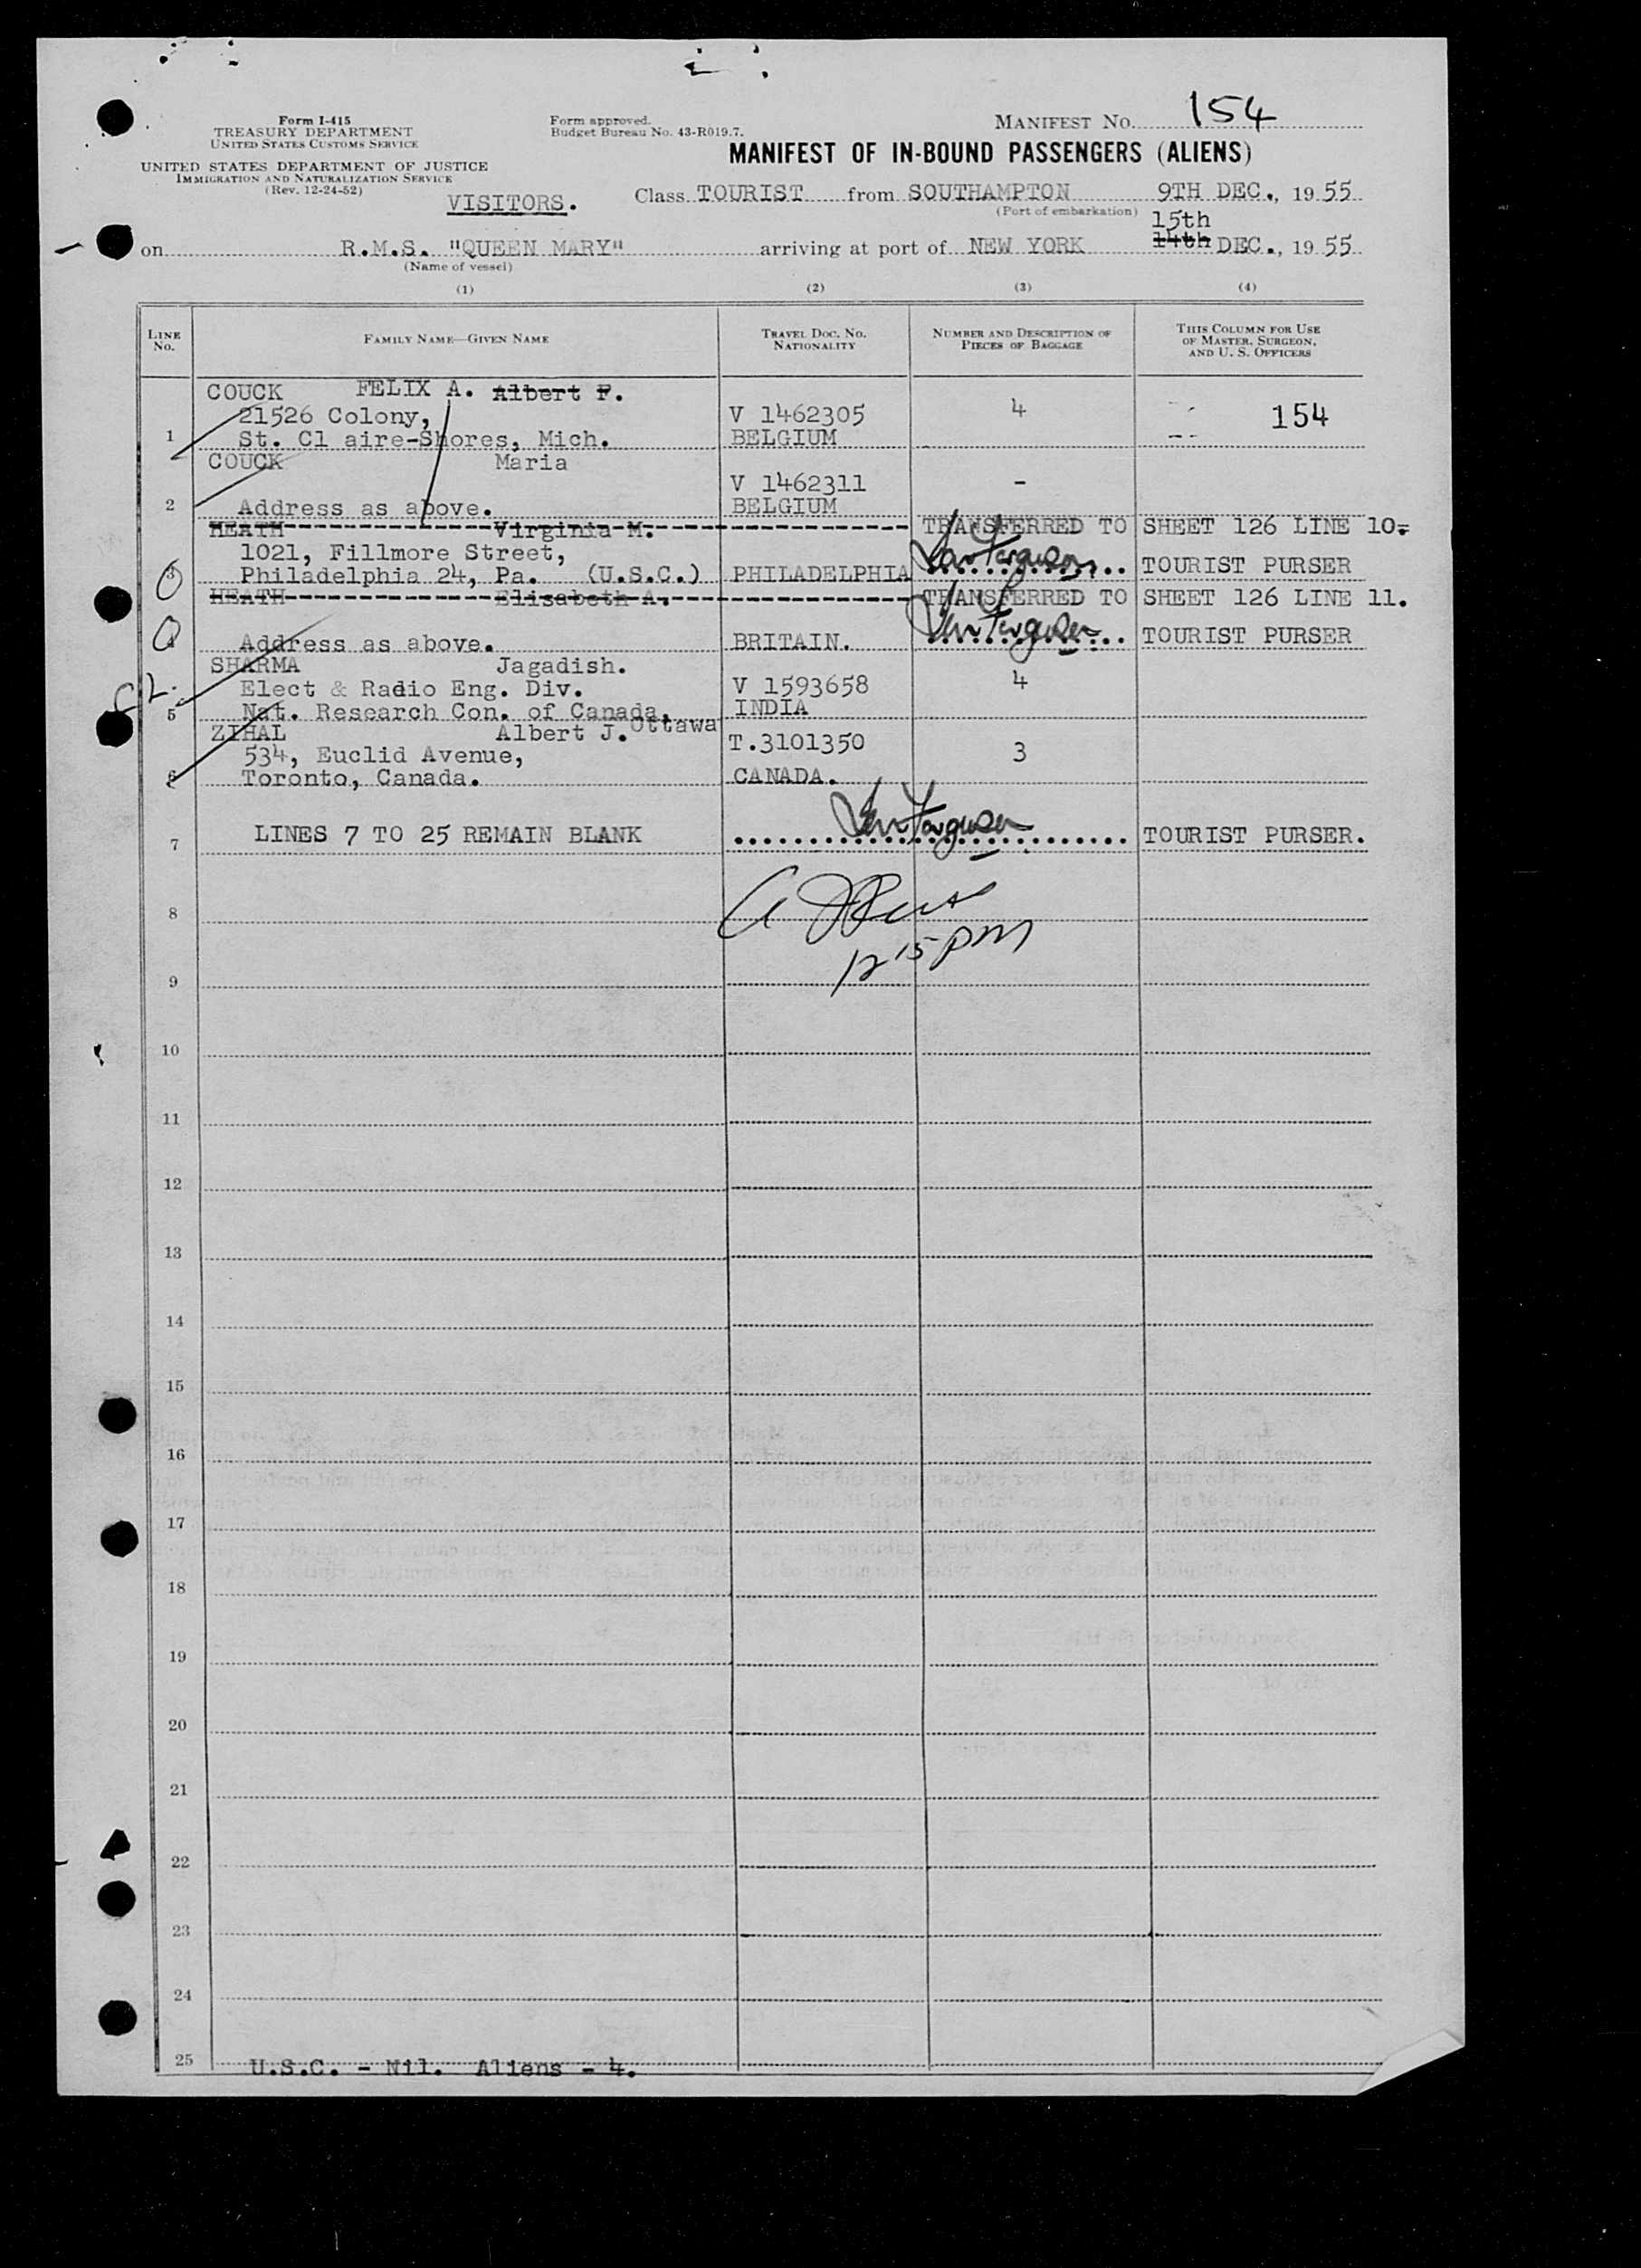 Form I-415
TREASURY DEPARTMENT
UNITED STATES CUSTOMS SERVICE
UNITED STATES DEPARTMENT OF JUSTICE
IMMIGRATION AND NATURALIZATION SERVICE
(Rev. 12-24-52)
Form approved.
Budget Bureau No. 43-R019.7.
MANIFEST NO. 154
MANIFEST OF IN-BOUND PASSENGERS (ALIENS)
VISITORS. Class TOURIST from SOUTHAMPTON 9TH DEC., 1955
(Port of embarkation)
15th
on R.M.S. "QUEEN MARY" arriving at port of NEW YORK 14th DEC., 1955
(Name of vessel)
(1) (2) (3) (4)
LINE No. FAMILY NAME—GIVEN NAME TRAVEL DOC. NO. NATIONALITY NUMBER AND DESCRIPTION OF PIECES OF BAGGAGE THIS COLUMN FOR USE OF MASTER, SURGEON, AND U. S. OFFICERS
COUCK FELIX A. Albert F.
21526 Colony, V 1462305 4 154
1 St. Cl aire-Shores, Mich. BELGIUM
COUCK Maria
V 1462311 -
2 Address as above. BELGIUM
HEATH Virginia M. TRANSFERRED TO SHEET 126 LINE 10.
1021, Fillmore Street,
3 Philadelphia 24, Pa. (U.S.C.) PHILADELPHIA TOURIST PURSER
HEATH Elisabeth A. TRANSFERRED TO SHEET 126 LINE 11.
4 Address as above. BRITAIN. TOURIST PURSER
SHARMA Jagadish.
Elect & Radio Eng. Div. V 1593658 4
5 Nat. Research Con. of Canada, Ottawa INDIA
ZIHAL Albert J. T.3101350
534, Euclid Avenue, 3
6 Toronto, Canada. CANADA.
7 LINES 7 TO 25 REMAIN BLANK TOURIST PURSER.
8
12 15 PM
9
10
11
12
13
14
15
16
17
18
19
20
21
22
23
24
25 U.S.C. - Nil. Aliens - 4.